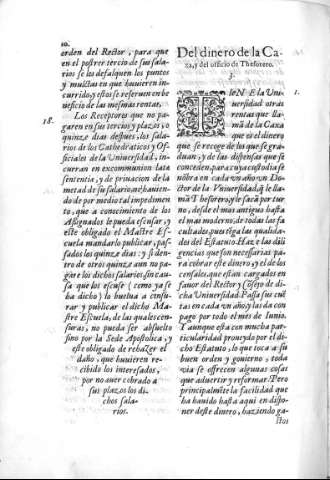 20.
orden del Rector, para que
en el postrer tercio de sus sala-
rios se los desfalquen los puntos
y multas en que huuieren in-
currido, y estos se refuerxen be
neficio de las mesmas rentas.
18. Los Receptores que no pa-
garen en sus tercios y plazos, o
quinze dias despues, los sala-
rios de los Cathedraticos y Of-
ficiales de la Vniuersidad, in-
curran en excomunion lata
sententia, y de priuacion de la
metad de su salario, no hauien-
do de por medio tal impedimen
to, que a conocimiento de los
Assignados le pueda escusar, y
este obligado el Mastre Es-
cuela mandarlo publicar, pas-
sados los quinze dias: y si den-
tro de otros quinze aun no pa-
gare los dichos salarios, sin cau-
sa que los escuse (como ya se
ha dicho) lo buelua a censu-
rar y publicar el dicho Ma
stre Escuela, de las quales cen-
suras, no pueda ser absuelto
sino por la Sede Apostolica, y
este obligado de rehazer el
daño, que huuieren re-
cibido los interesados,
por no auer cobrado a
sus plazos los di-
chos sala-
rios.
Del dinero de la Ca-
xa, y del officio de Thesorero.
3.
TIeNE la Vni 1.
uersidad otras
rentas que lla-
mã de la Caxa
que es el dinero
que se recoge de los que se gra-
duan, y de las dispensas que se
conceden, para cuya custodia se
nõbra en cada vn año vn Do-
ctor de la Vniuersidad, q̃ le lla-
mã Thesorero, y se saca por tur-
no, desde el mas antiguo hasta
el mas moderno, de todas las fa
cultades, puesto q̃ la qualida-
des del Estatuto. Haze las dili
gencias que son necesarias pa-
ra cobrar este dinero, y el de los
censales, que estan cargados en
fauor del Rector y Cõsejo de di-
cha Vniuersidad. Passa sus cuẽ
tas en cada vn año, y las da con
pago por todo el mes de Iunio.
Y aunque esta con mucha par-
ticularidad proueydo por el di-
cho Estatuto, lo que toca a su
buen orden y gouierno, toda
via se offrecen algunas cosas
que aduertir y reformar. Pero
principalmẽte la facilidad que
ha hauido hasta aqui en dispo-
ner deste dinero, haziendo ga-
stos